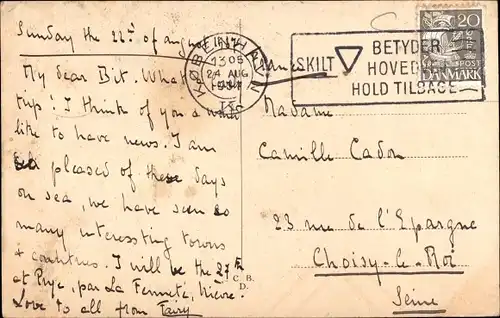 Sunday the 22d of august
My dear Bit. What
trip! I think of you &
like to have news. I am
so pleased of these days
on sea, we have seen so
many interessting towns
& countries. I will be the 27th
at Prye, par La Fermeté, Nièvre.
Love to all from
KØBENHAVN
1305
24 AUG
SKILT
BETYDER
HOVED
HOLD TILBAGE
20
POST
DANMARK
Madame
Camille Cadon
23 rue de l'Epargne
Choisy-le-Roi
Seine
C. B.
D.